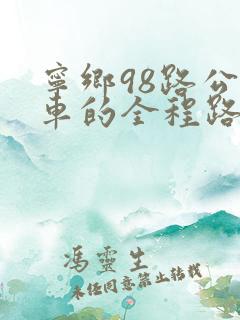 寧鄉98路公
車的全程路
馮靈生
未任同意禁止转载